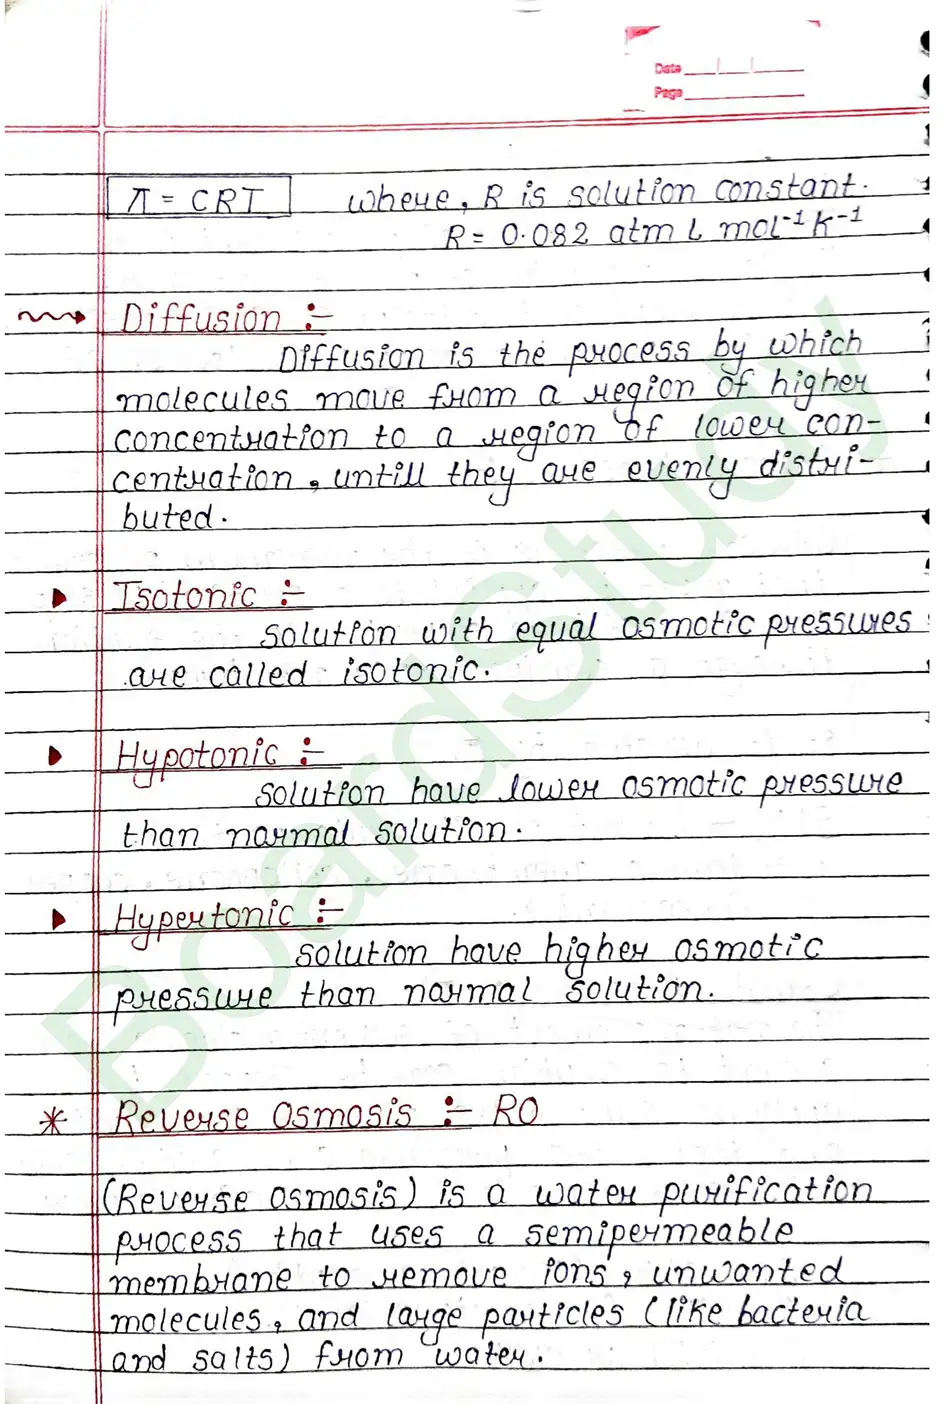 Date
Page
π = CRT where, R is solution constant.
R = 0.082 atm L mol⁻¹ K⁻¹
Diffusion :-
Diffusion is the process by which
molecules move from a region of higher
concentration to a region of lower con-
centration, untill they are evenly distri-
buted.
Isotonic :-
solution with equal osmotic pressures
are called isotonic.
Hypotonic :-
solution have lower osmotic pressure
than normal solution.
Hypertonic :-
solution have higher osmotic
pressure than normal solution.
Reverse Osmosis :- RO
(Reverse osmosis) is a water purification
process that uses a semipermeable
membrane to remove ions, unwanted
molecules, and large particles (like bacteria
and salts) from water.
BoardStudy